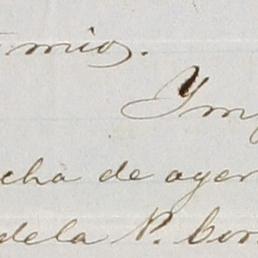 mio.
Ym
cha de ayer
dela N. Cor